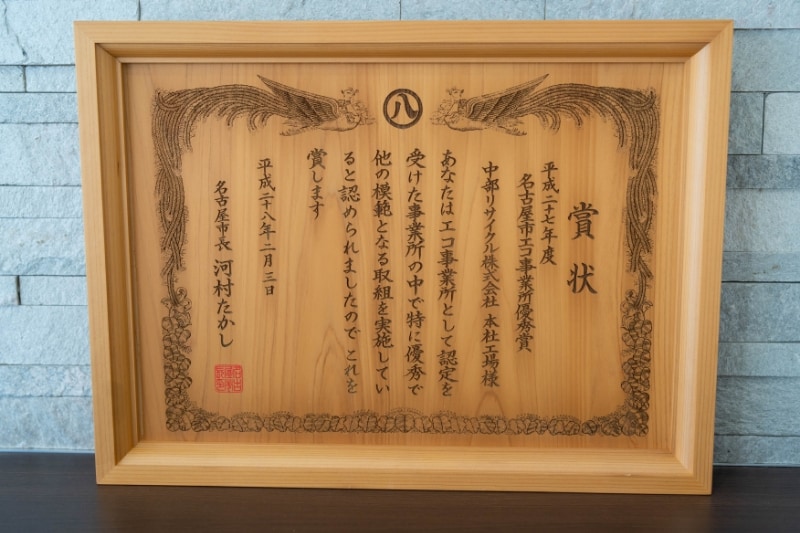 八
賞状
平成二十七年度
名古屋市エコ事業所優秀賞
中部リサイクル株式会社 本社工場様
あなたはエコ事業所として認定を
受けた事業所の中で特に優秀で
他の模範となる取組を実施してい
ると認められましたので これを
賞します
平成二十八年二月三日
名古屋市長 河村たかし